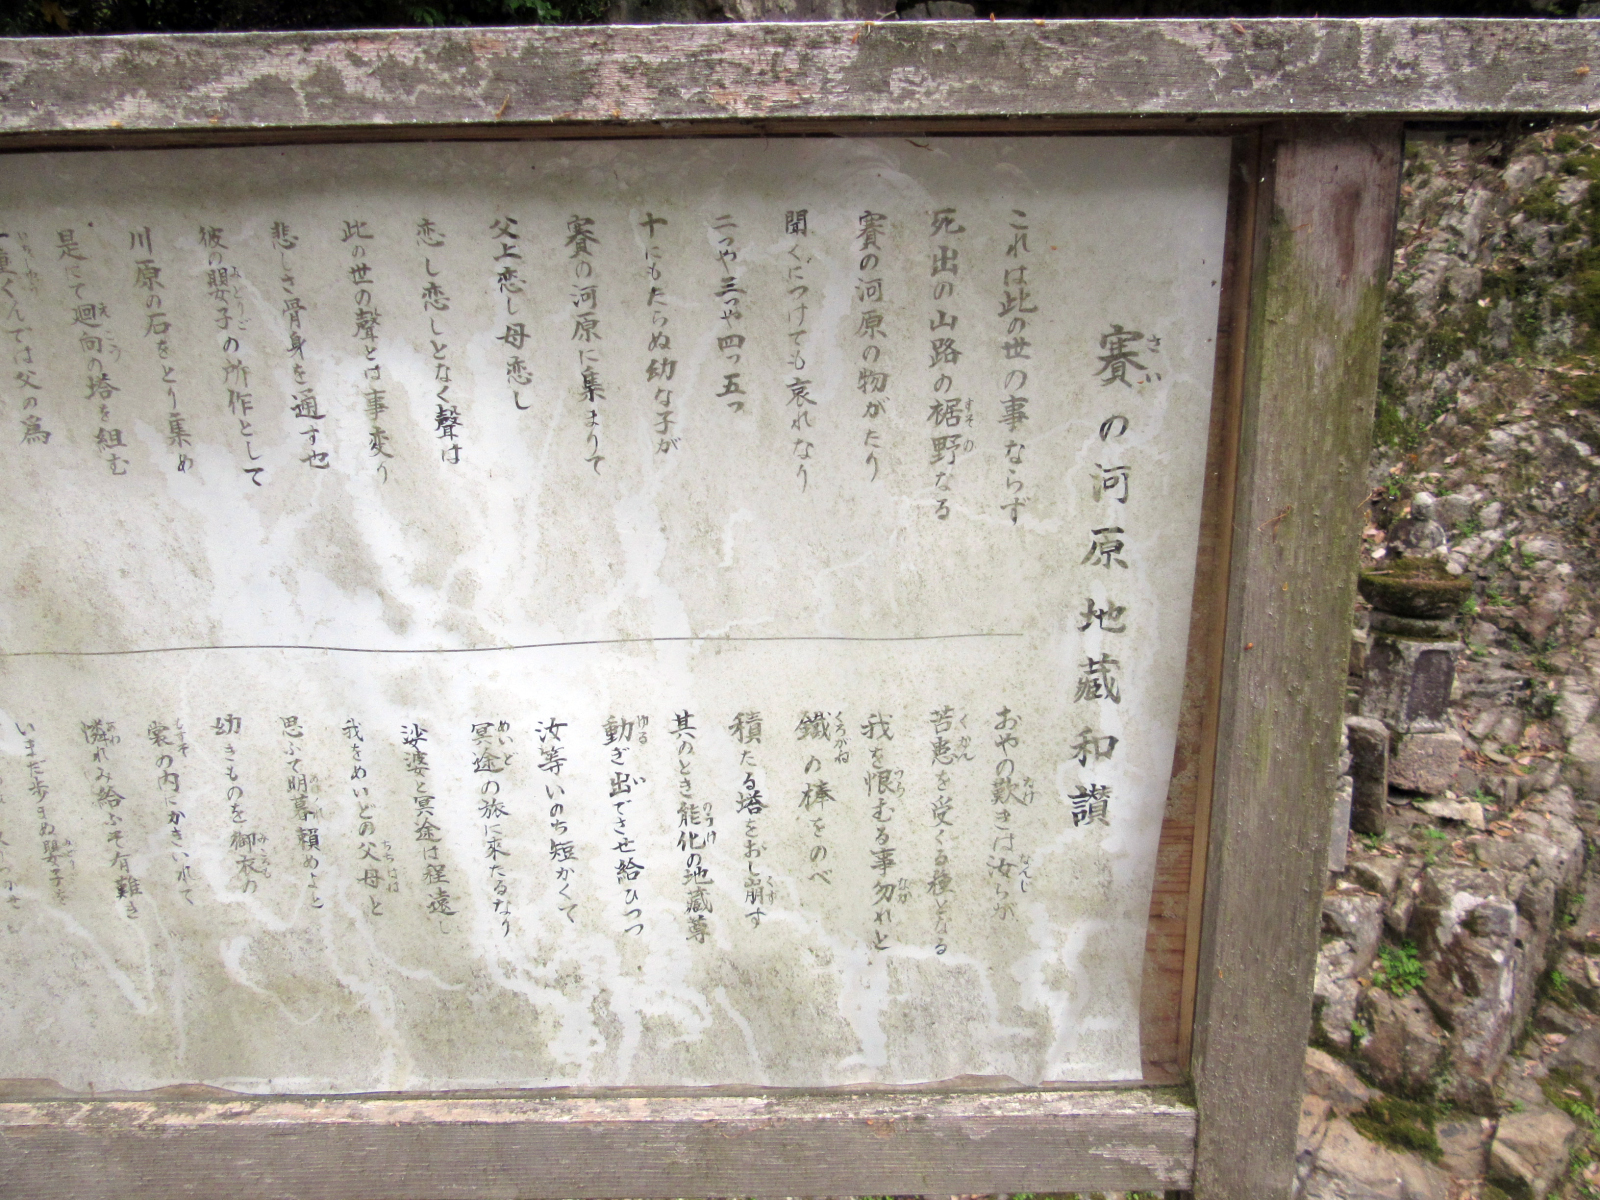 賽の河原地蔵和讃
これは此の世の事ならず
死出の山路の裾野なる
賽の河原の物がたり
聞くにつけても哀れなり
二つや三つや四つ五つ
十にもたらぬ幼な子が
賽の河原に集まりて
父上恋し母恋し
恋し恋しとなく聲は
此の世の聲とは事変り
悲しさ骨身を通す也
彼の嬰子の所作として
川原の石をとり集め
是にて廻向の塔を組む
一重くんでは父の為
おやの歎きは汝らが
苦患を受くる種となる
我を恨むる事勿れと
鐵の棒をのべ
積たる塔をおし崩す
其のとき能化の地蔵尊
動ぎ出でさせ給ひつつ
汝等いのち短かくて
冥途の旅に來たるなり
娑婆と冥途は程遠し
我をめいどの父母と
思ふて明暮頼めよと
幼きものを御衣の
裳の内にかきいれて
憐れみ給ふぞ有難き
いまだ歩まぬ嬰子を